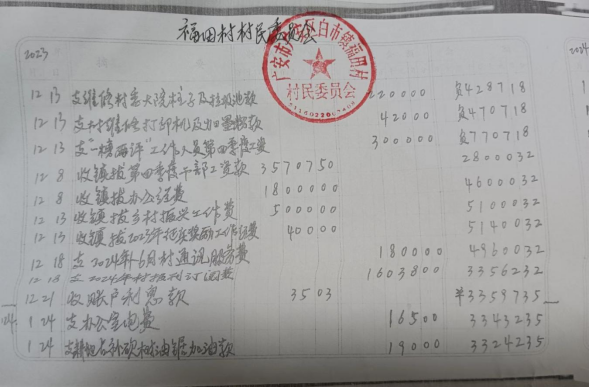 福田村村民委员会
2023
2024
广安市 区白市镇福田村
村民委员会
12 13 支维修村委大院柱子及垃圾池款 220000 负428718
12 13 支村维修打印机及加墨粉款 42000 负470718
12 13 支"一榜两评"工作人员第四季度工资 300000 负770718
12 8 收镇拨第四季度干部工资款 3570750 2800032
12 8 收镇拨办公经费 1800000 4600032
12 13 收镇拨乡村振兴工作费 500000 5100032
12 13 收镇拨2023年 工作经费 40000 5140032
12 18 支2024年1-6月村通讯服务费 180000 4960032
12 18 支2024年村报刊订阅费 1603800 3356232
12 21 收账户利息款 3503 ¥3359735
1 24 支办公室电费 16500 3343235
1 24 油锯加油款 19000 3324235